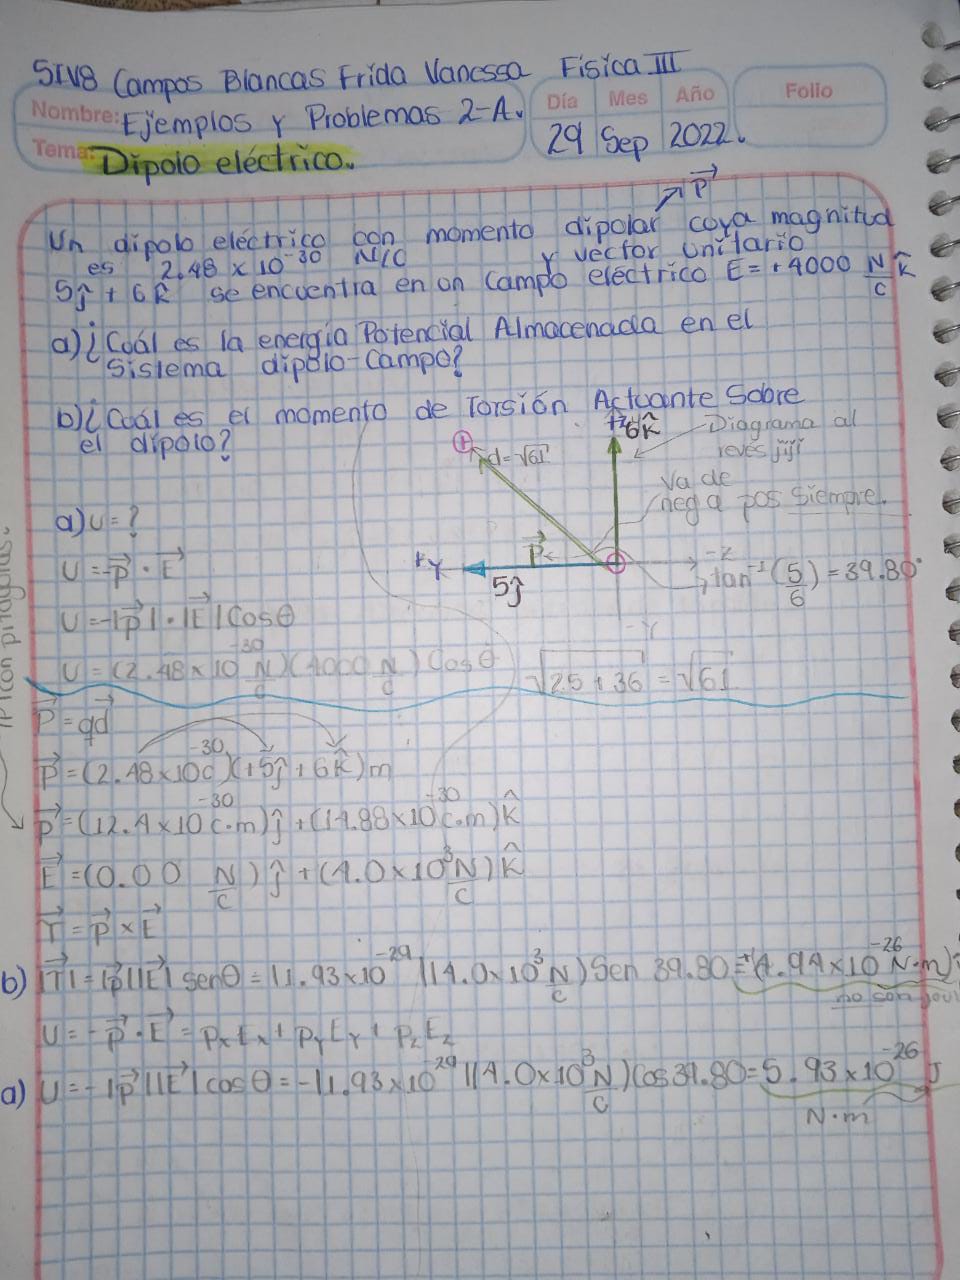 5IV8 Campos Blancas Frida Vanessa Física III
Nombre: Ejemplos y Problemas 2-A.
Día Mes Año Folio
29 Sep 2022.
Tema: Dipolo eléctrico.
↗ P⃗
Un dipolo eléctrico con momento dipolar cuya magnitud
es 2.48 x 10⁻³⁰ N/C y vector unitario
5ĵ + 6k̂ se encuentra en un campo eléctrico E = +4000 N/C k̂
a) ¿Cuál es la energía Potencial Almacenada en el
sistema dipolo-campo?
b) ¿Cuál es el momento de Torsión Actuante Sobre
el dipolo?
6k̂
Diagrama al
revés jiji
d=√61
Va de
neg a pos siempre.
+y
P⃗
5ĵ
-z
tan⁻¹(5/6) = 39.80°
-y
√25 + 36 = √61
a) U = ?
U = -P⃗ · E⃗
U = -|P⃗| · |E⃗| Cosθ
U = (2.48 x 10⁻³⁰ N/C)(4000 N/C) Cosθ
P⃗ = qd⃗
P⃗ = (2.48 x 10⁻³⁰ C)(+5ĵ + 6k̂)m
P⃗ = (12.4 x 10⁻³⁰ C·m)ĵ + (14.88 x 10⁻³⁰ C·m)k̂
E⃗ = (0.00 N/C)ĵ + (4.0 x 10³ N/C)k̂
T⃗ = P⃗ x E⃗
b) |T⃗| = |P⃗||E⃗| senθ = |1.93 x 10⁻²⁹||4.0 x 10³ N/C) Sen 39.80 = +(4.94 x 10⁻²⁶ N·m)
no son
U = -P⃗ · E⃗ = PxEx + PyEy + PzEz
a) U = -|P⃗||E⃗| cosθ = -|1.93 x 10⁻²⁹||4.0 x 10³ N/C) Cos 39.80 = 5.93 x 10⁻²⁶ J
N·m